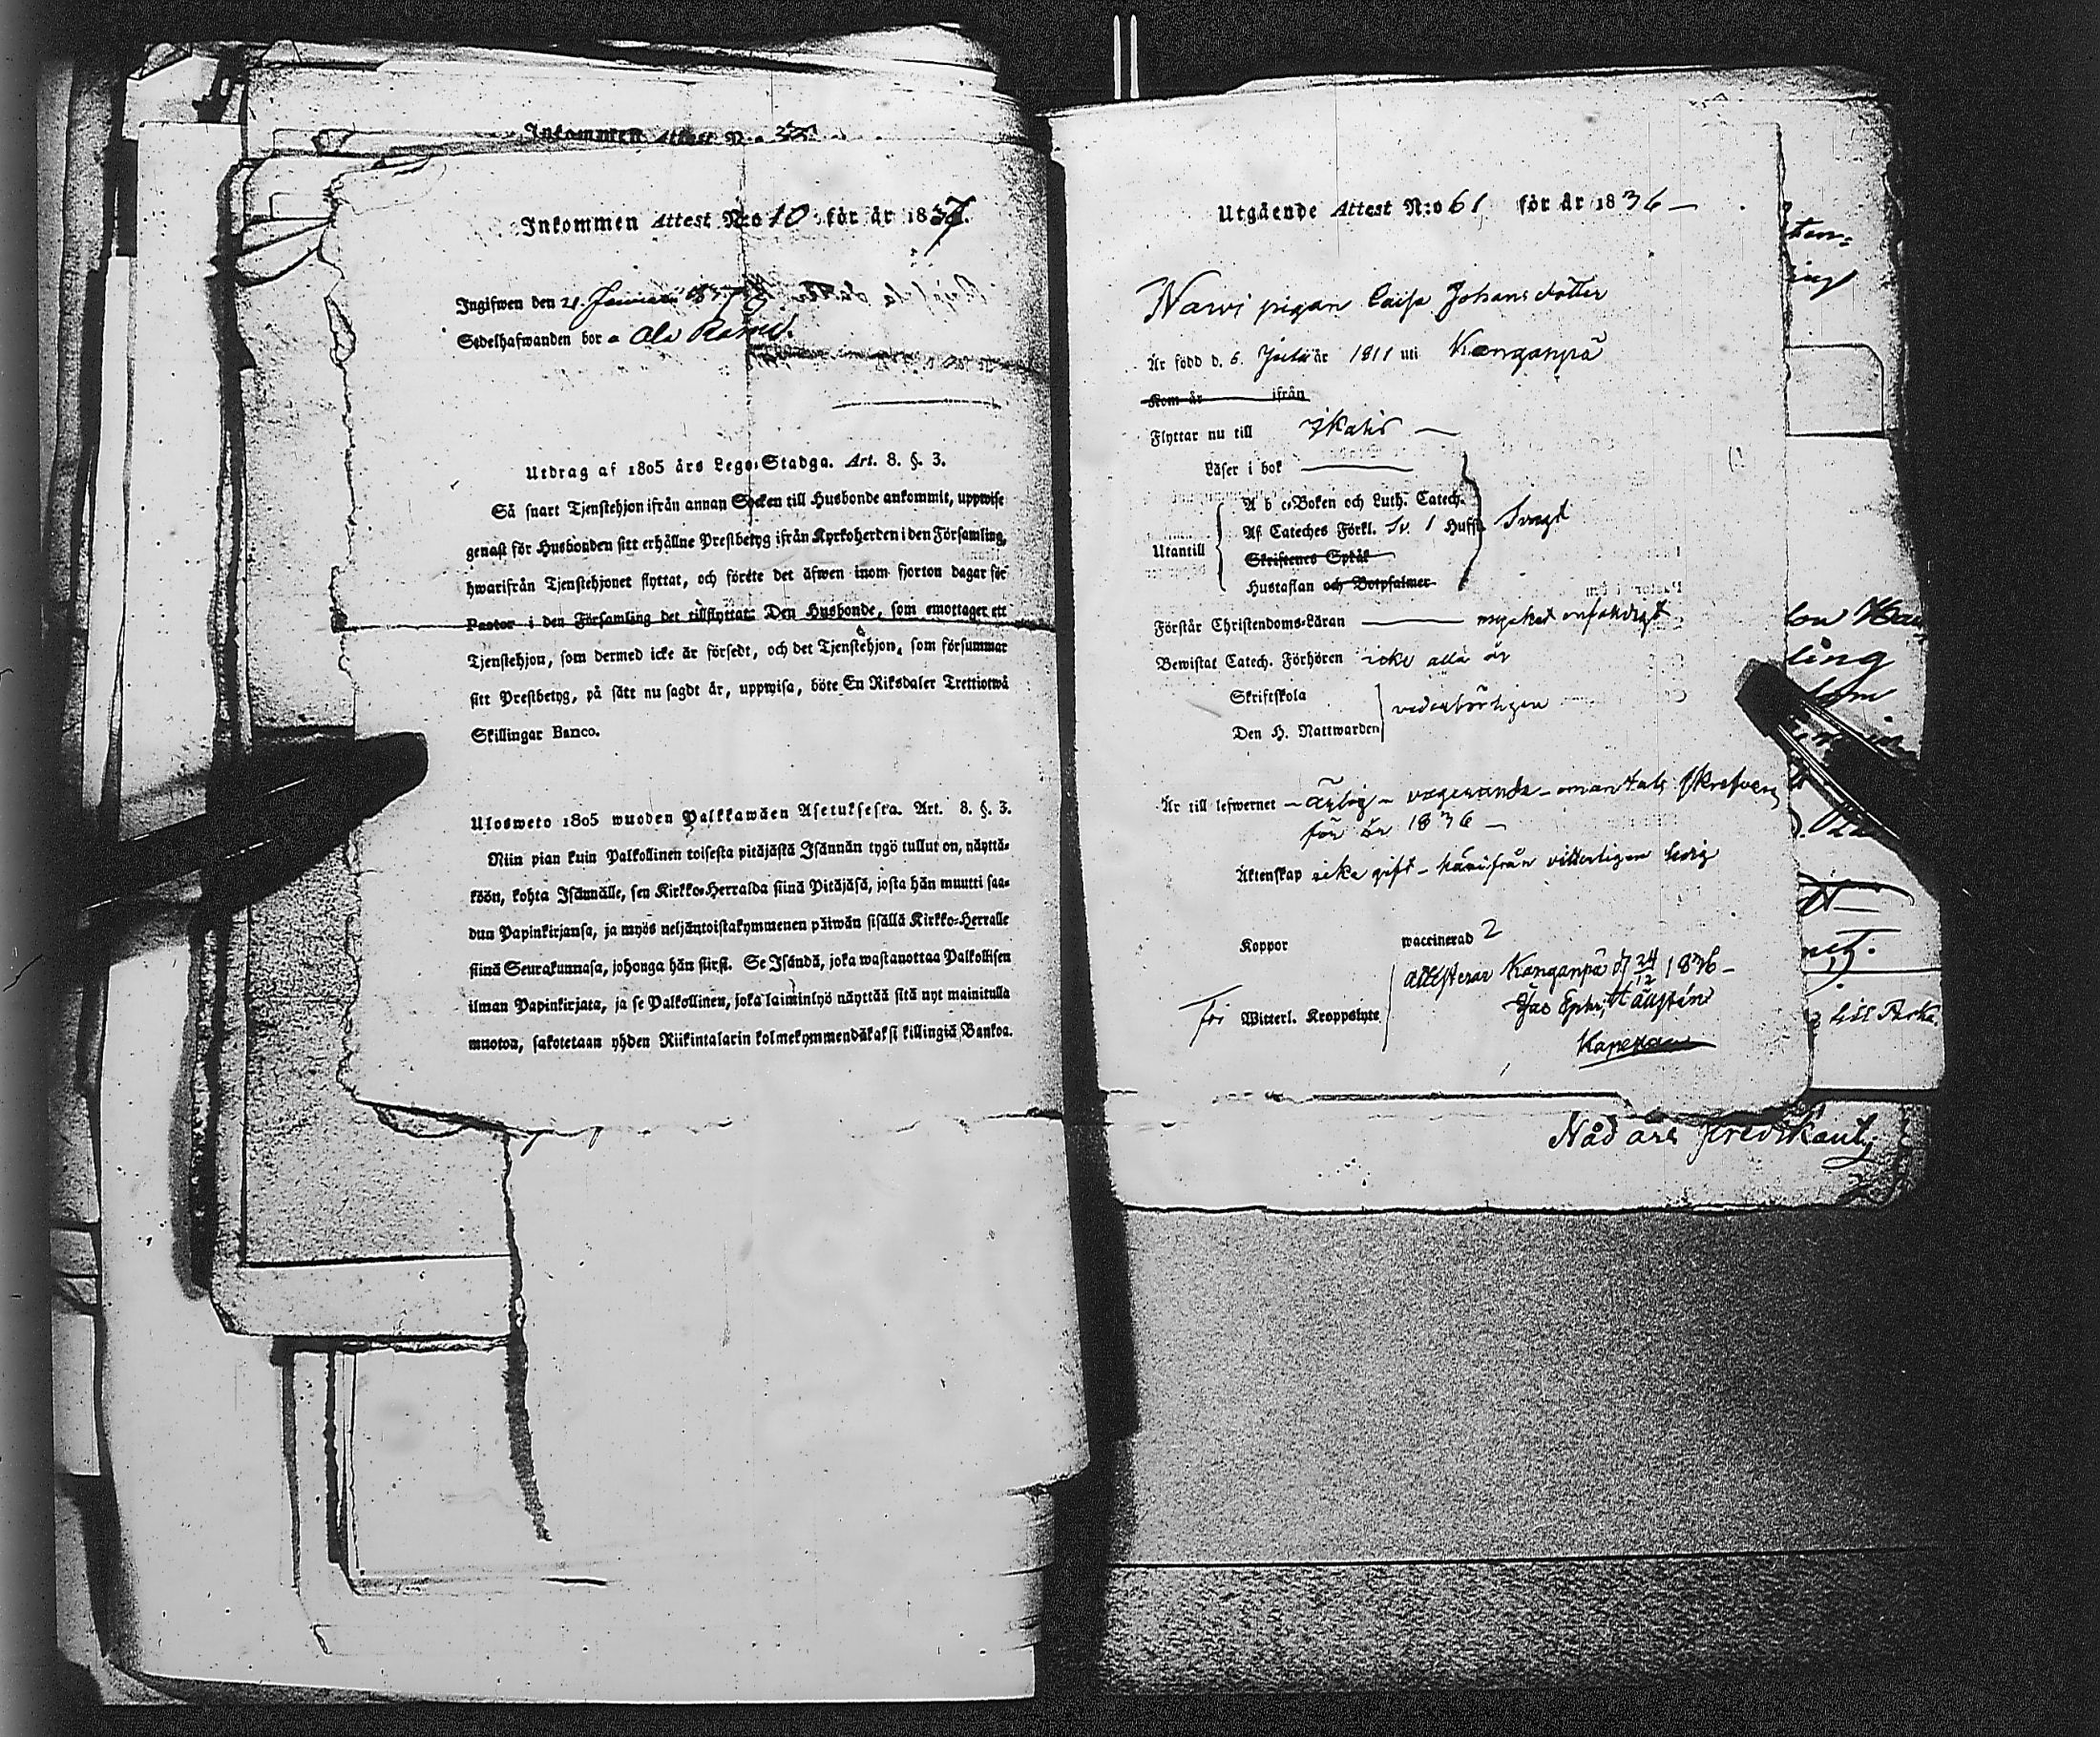 Inkommen Attest N:o
Inkommen Attest N:o 10 för år 1837.
Ingifwen den 21 Januarii 1837
Sedelhafwanden bor å Ala
Utdrag af 1805 års Lego-Stadga. Art. 8. §. 3.
Så snart Tjenstehjon ifrån annan Socken till Husbonde ankommit, uppwise
genast för Husbonden sitt erhållne Prestbetyg ifrån Kyrkoherden i den Församling,
hwarifrån Tjenstehjonet flyttat, och förete det äfwen inom fjorton dagar för
Pastor i den Församling det tillflyttat. Den Husbonde, som emottager ett
Tjenstehjon, som dermed icke är försedt, och det Tjenstehjon, som försummar
sitt Prestbetyg, på sätt nu sagdt är, uppwisa, böte En Riksdaler Trettiotwå
Skillingar Banco.
Ulosweto 1805 wuoden Palkkawäen Asetuksesta. Art. 8. §. 3.
Niin pian kuin Palkollinen toisesta pitäjästä Isännän tygö tullut on, näyttä-
köön, kohta Isännälle, sen Kirkko-Herralda siinä Pitäjäsä, josta hän muutti saa-
dun Papinkirjansa, ja myös neljäntoistakymmenen päiwän sisällä Kirkko-Herralle
siinä Seurakunnasa, johonga hän siirsi. Se Isändä, joka wastanottaa Palkollisen
ilman Papinkirjata, ja se Palkollinen, joka laiminlyö näyttää sitä nyt mainitulla
muoton, sakotetaan yhden Riikintalarin kolmekymmendäkaksi killingiä Bankoa.
Utgående Attest N:o 61 för år 1836
pigan Caisa Johansdotter
Är född d. 6. Julii år 1811 uti Kanganpä
Kom år ifrån
Flyttar nu till Ikalis
Läser i bok
Utantill
A b c-Boken och Luth. Catech.
Af Cateches Förkl. Sv. 1 Huffst. Svagt
Skriftenes Språk
Hustaflan och Botpsalmer
Förstår Christendoms-Läran mycket enfaldigt
Bewistat Catech. Förhören icke alla år
Skriftskola
Den H. Nattwarden
vederbörligen
Är till lefwernet ärlig - - mantals skrefven
för år 1836
Äktenskap icke gift - härifrån vitterligen ledig
Koppor waccinerad 2
Attesterar Kanganpä d 24/12 1836
Fri Witterl. Kroppslyte
Jac Ephr
Nåd års Predikant